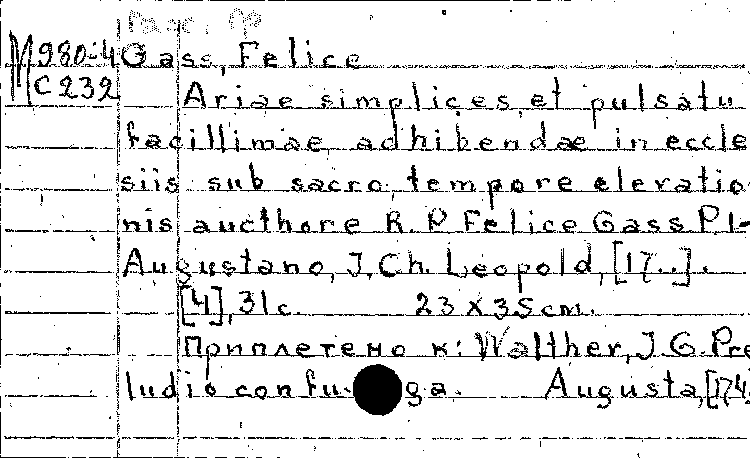 M 980-4 Gass, Felice
C 232
Ariae simplices, et pulsatu
facillimae adhibendae in eccle
siis sub sacro, tempore elevatio
nis aucthore R. P. Felice Gass Pl-
Augustano, J. Ch. Leopold, [17..].
[4], 31 c. 23 x 35 cm.
Приплетено к: Walther, J. G. Pre
ludio con fu ga. Augusta, [174